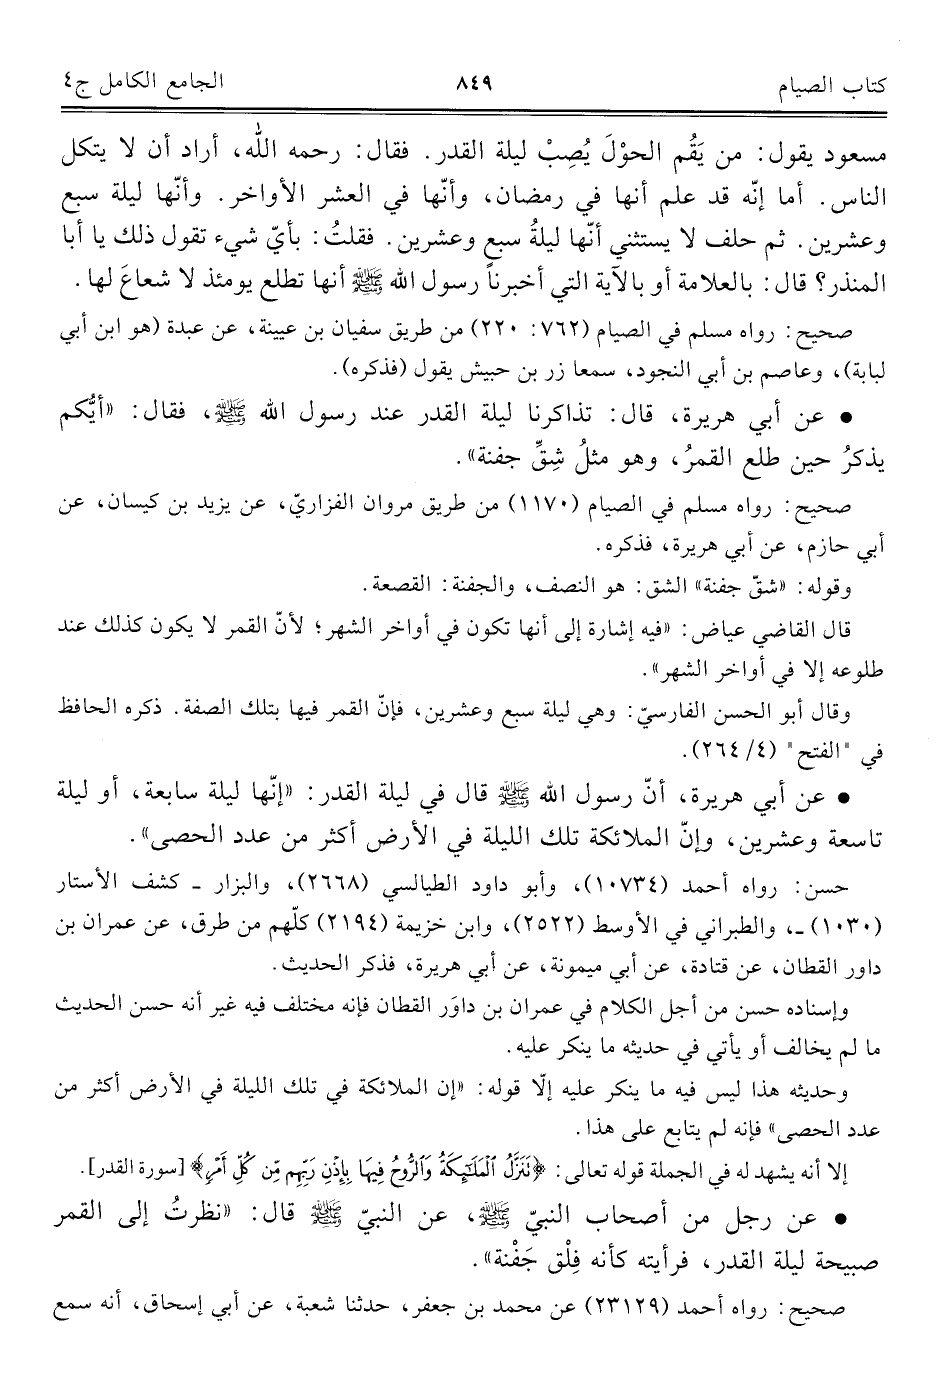 كتاب الصيام ٨٤٩ الجامع الكامل ج٤
مسعود يقول: من يَقُم الحوْلَ يُصِبْ ليلة القدر. فقال: رحمه الله، أراد أن لا يتكل
الناس. أما إنّه قد علم أنها في رمضان، وأنّها في العشر الأواخر. وأنّها ليلة سبع
وعشرين. ثم حلف لا يستثني أنّها ليلةُ سبع وعشرين. فقلتُ: بأيّ شيء تقول ذلك يا أبا
المنذر؟ قال: بالعلامة أو بالآية التي أخبرناً رسول الله ﷺ أنها تطلع يومئذ لا شعاعَ لها.
صحيح: رواه مسلم في الصيام (٧٦٢: ٢٢٠) من طريق سفيان بن عيينة، عن عبدة (هو ابن أبي
لبابة)، وعاصم بن أبي النجود، سمعا زر بن حبيش يقول (فذكره).
• عن أبي هريرة، قال: تذاكرنا ليلة القدر عند رسول الله ﷺ، فقال: «أيُّكم
يذكرُ حين طلع القمرُ، وهو مثلُ شِقِّ جفنة».
صحيح: رواه مسلم في الصيام (١١٧٠) من طريق مروان الفزاريّ، عن يزيد بن كيسان، عن
أبي حازم، عن أبي هريرة، فذكره.
وقوله: «شقّ جفنة» الشق: هو النصف، والجفنة: القصعة.
قال القاضي عياض: «فيه إشارة إلى أنها تكون في أواخر الشهر؛ لأنّ القمر لا يكون كذلك عند
طلوعه إلا في أواخر الشهر».
وقال أبو الحسن الفارسيّ: وهي ليلة سبع وعشرين، فإنّ القمر فيها بتلك الصفة. ذكره الحافظ
في "الفتح" (٤/ ٢٦٤).
• عن أبي هريرة، أنّ رسول الله ﷺ قال في ليلة القدر: «إنّها ليلة سابعة، أو ليلة
تاسعة وعشرين، وإنّ الملائكة تلك الليلة في الأرض أكثر من عدد الحصى».
حسن: رواه أحمد (١٠٧٣٤)، وأبو داود الطيالسي (٢٦٦٨)، والبزار ـ كشف الأستار
(١٠٣٠) ـ، والطبراني في الأوسط (٢٥٢٢)، وابن خزيمة (٢١٩٤) كلّهم من طرق، عن عمران بن
داور القطان، عن قتادة، عن أبي ميمونة، عن أبي هريرة، فذكر الحديث.
وإسناده حسن من أجل الكلام في عمران بن داوَر القطان فإنه مختلف فيه غير أنه حسن الحديث
ما لم يخالف أو يأتي في حديثه ما ينكر عليه.
وحديثه هذا ليس فيه ما ينكر عليه إلّا قوله: «إن الملائكة في تلك الليلة في الأرض أكثر من
عدد الحصى» فإنه لم يتابع على هذا.
إلا أنه يشهد له في الجملة قوله تعالى: ﴿نَنَزَّلُ ٱلْمَلَـٰٓئِكَةُ وَٱلرُّوحُ فِيهَا بِإِذْنِ رَبِّهِم مِّن كُلِّ أَمْرٍ﴾ [سورة القدر].
• عن رجل من أصحاب النبيّ ﷺ، عن النبيّ ﷺ قال: «نظرتُ إلى القمر
صبيحة ليلة القدر، فرأيته كأنه فِلْق جَفْنة».
صحيح: رواه أحمد (٢٣١٢٩) عن محمد بن جعفر، حدثنا شعبة، عن أبي إسحاق، أنه سمع